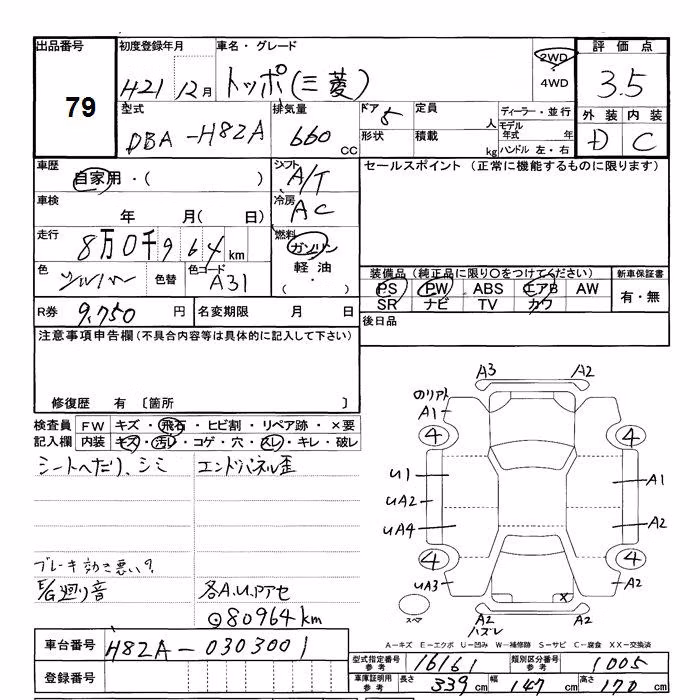 出品番号 初度登録年月 車名・グレード 評価点
79 H21 12月 トッポ(三菱) 2WD・4WD 3.5
型式 排気量 ドア 5 定員 人 ディーラー・並行 外装 内装
DBA-H82A 660 CC 形状 積載 kg モデル年式 年 ハンドル 左・右 D C
車歴 自家用・( ) シフト A/T セールスポイント (正常に機能するものに限ります)
車検 年 月( 日) 冷房 AC
走行 8万0千964km 燃料 ガソリン
軽油
( ・ )
色 シルバー 色替 色コード A31 装備品(純正品に限り○をつけてください) 新車保証書
PS PW ABS エアB AW 有・無
SR ナビ TV カワ
R券 9,750 円 名変期限 月 日 後日品
注意事項申告欄(不具合内容等は具体的に記入して下さい)
修復歴 有 〔箇所 〕
検査員 FW キズ・飛石・ヒビ割・リペア跡・×要
記入欄 内装 キズ・汚レ・コゲ・穴・スレ・キレ・破レ
シートへたり、シミ エンドパネル歪
ブレーキ効き悪い?
E/G廻り音 各A.U.Pアセ
80964km
A3 A2
A1
4 4
U1 A1
UA2
UA4 A2
4 4
UA3 A2
X
スペア A2 A2
ハズレ
A-キズ E-エクボ U-凹み W-補修跡 S-サビ C-腐食 XX-交換済
車台番号 H82A-0303001
登録番号
型式指定番号参考 16161 類別区分番号参考 1005
車庫証明用参考 長さ 339cm 幅 147cm 高さ 170cm